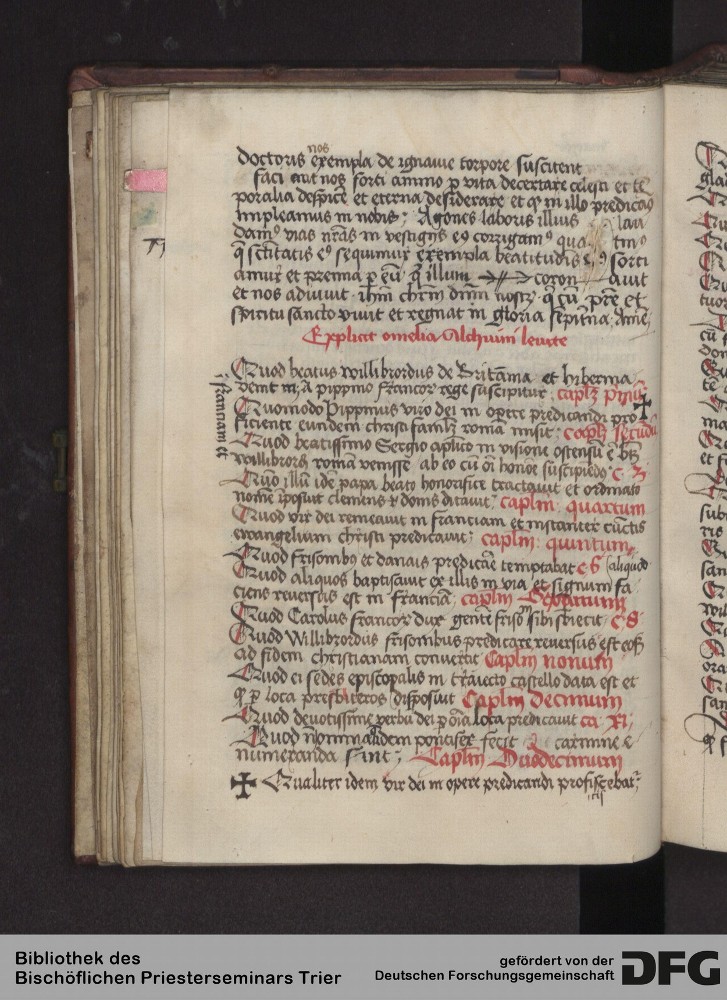 doctoris nos exempla de ignauie torpore suscitent
faci aut nos forti animo p vita decertare celesti et te
poralia despicere et eterna desiderare et qd in illo predicam9
impleamus in nobis: Agones laboris illius lau
dam9 vias nras in vestigijs ei9 corrigam9 qua tin9
q sctitatis ei9 sequimur exempla beatitudis ei9 sorti
amur et premia p eu: q illum coron auit
et nos adiuuit ihm chrm dnm nostr: q cu pre et
spiritu sancto viuit et regnat in gloria sepitna: Ame
Explicit omelia Alchuini leuite
Quod beatus willibrordus de Britania et hibernia
in franciam et
venit in: A pippino francor rege suscipitur: caplm primu
Quomodo Pippinus viro dei in opere predicandi pro
ficiente eundem christi famlm romam misit: caplm secudu
Quod beatissimo Sergio aplico in visioni ostensu e bts
willibrord9 romam venisse ab eo cu oi honore suscipiedo c 3
Quo illu ide papa beato honorifice tractauit et ordinato
nome iposuit clemens et donis ditauit: caplm: quartum
Quod vir dei remeauit in franciam et instanter cunctis
ewangelium christi predicauit: caplm: quintum
Quod frisonib9 et danais predicare temptabat c 6 aliquod
Quod aliquos baptisauit ex illis in via et signum fa
ciens reuersus est in francia: caplm Septimum
Quod Carolus francor dux gente friso sibi sbiecit: c 8
Quod Willibrordus frisonibus predicare reuersus est eosq
ad fidem christianam conuertit Caplm nonum
Quod ei sedes episcopalis in traiecto castello data est et
q p loca presbiteros disposuit Caplm decimum
Quod deuotissime verbu dei p oia loca predicauit ca: xi
Quod non modem pontifex fecit carmine
numeranda sint: Caplm Duodecimum
Qualiter idem vir dei in opere predicandi proficebat
71
Bibliothek des
Bischöflichen Priesterseminars Trier
gefördert von der
Deutschen Forschungsgemeinschaft
DFG